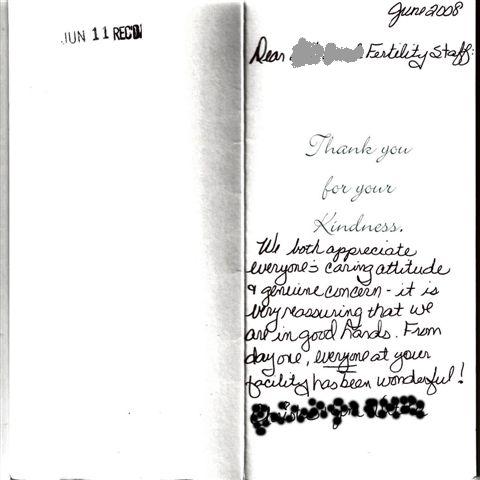 JUN 11 REC'D
June 2008
Dear Fertility Staff:
Thank you
for your
Kindness.
We both appreciate
everyone's caring attitude
& genuine concern - it is
very reassuring that we
are in good hands. From
day one, everyone at your
facility has been wonderful!